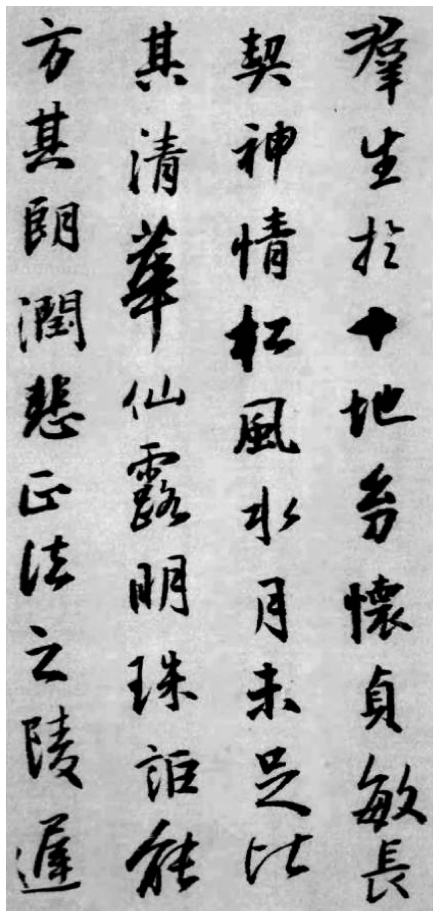 羣生於十地幼懷貞敏長
契神情松風水月未足比
其清華仙露明珠詎能
方其朗潤悲正法之陵遲